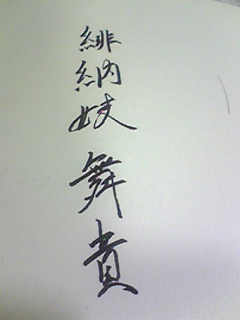 緋納妓舞貴